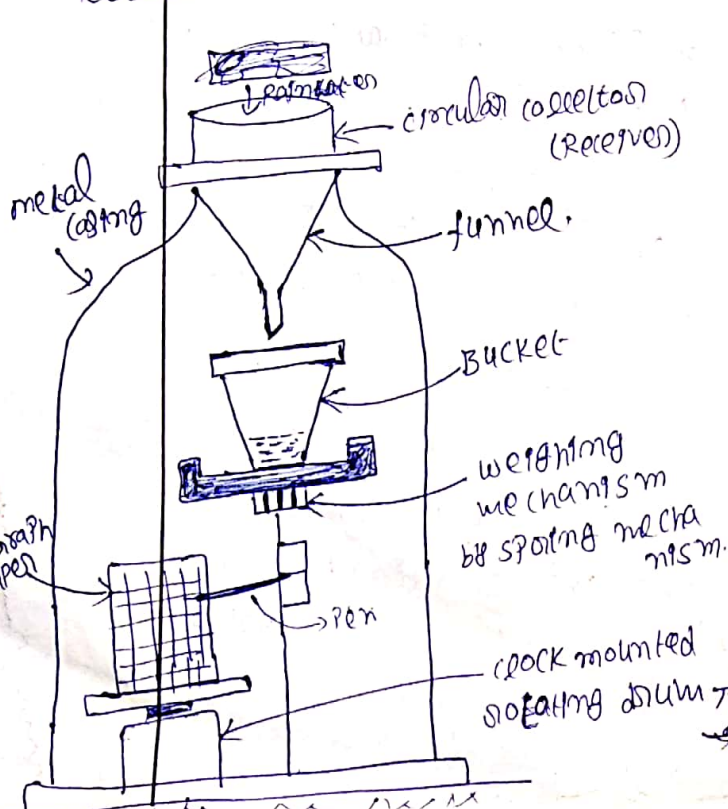 Rainwater
circular collector
(Receiver)
metal
casing
funnel.
Bucket
weighing
mechanism
by spring mecha
nism.
graph
Pen
clock mounted
rotating drum